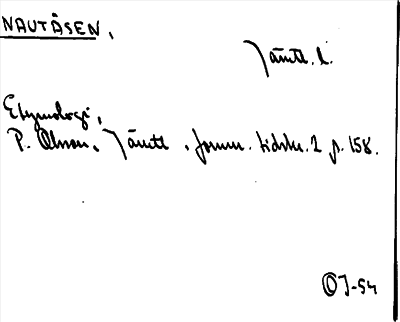 NAUTÅSEN.
Jämtl. l.
Etymologi,
P. Olsson, Jämtl. fornm. tidskr. 2 p. 158.
OJ-54